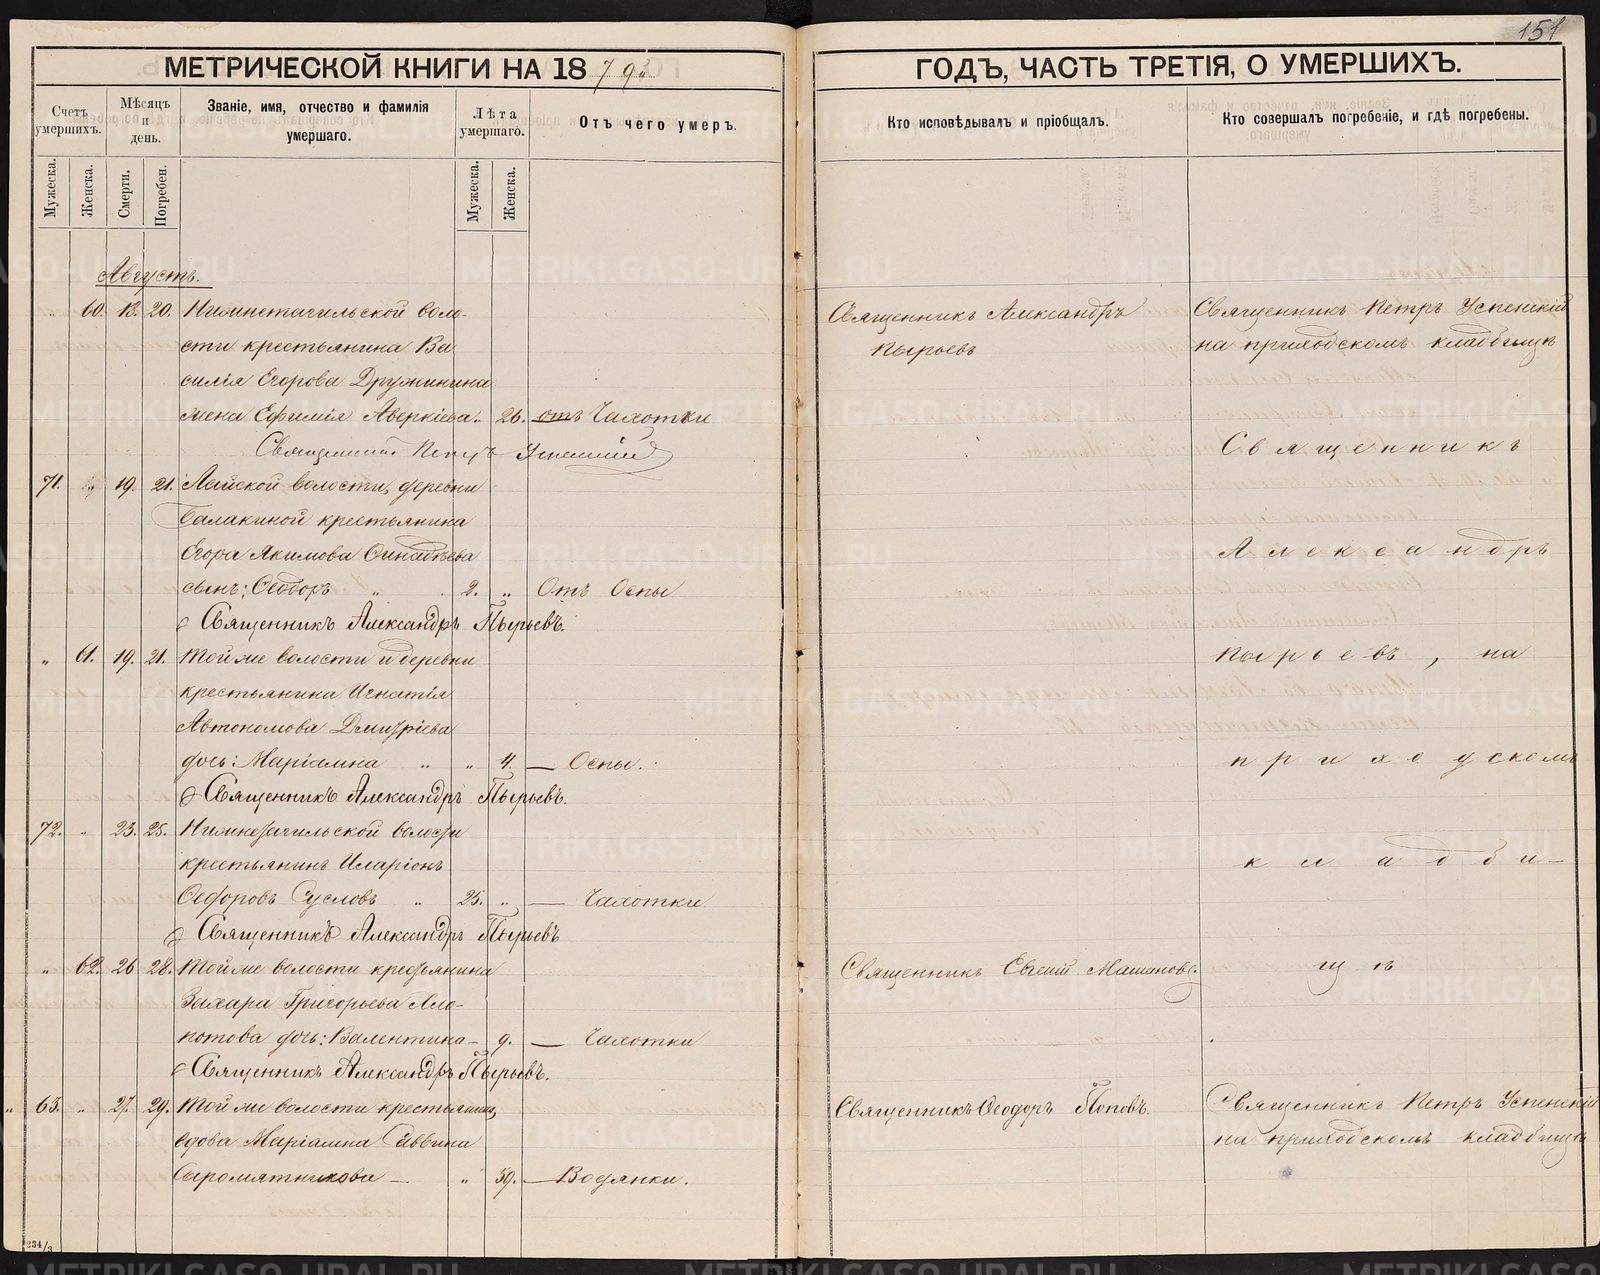 151
МЕТРИЧЕСКОЙ КНИГИ НА 1893
ГОДЪ, ЧАСТЬ ТРЕТІЯ, О УМЕРШИХЪ.
Счетъ умершихъ.
Мѣсяцъ и день.
Званіе, имя, отчество и фамилія умершаго.
Лѣта умершаго.
Отъ чего умеръ.
Кто исповѣдывалъ и пріобщалъ.
Кто совершалъ погребеніе, и гдѣ погребены.
Мужеска.
Женска.
Смерти.
Погребен.
Мужеска.
Женска.
Августъ.
„ 60. 13. 20. Нижнетагильской воло-
сти крестьянина Ва
силія Егорова Дружинина
жена Ефимія Аверкіева „ 26. отъ Чахотки
Священникъ Петръ Успенскій
71. „ 19. 21. Лайской волости, деревни
Балакиной крестьянина
Егора Якимова
сынъ: Ѳеодоръ „ 2. „ Отъ Оспы
Священникъ Александръ Пырьевъ.
„ 61. 19. 21. Той же волости и деревни
крестьянина Игнатія
Автономова Дмитріева
дочь: Маріамна „ „ 4. — Оспы.
Священникъ Александръ Пырьевъ.
72. „ 23. 25. Нижнетагильской волости
крестьянинъ Иларіонъ
Ѳедоровъ Сусловъ „ 25. „ — Чахотки
Священникъ Александръ Пырьевъ
„ 62. 26 28. Той же волости крестьянина
Захара Григорьева Ло-
потова дочь: Валентина — 9. — Чахотки
Священникъ Александръ Пырьевъ.
„ 63. „ 27. 29. Той же волости крестьянин,
вдова Маріамна Саввина
Сыромятникова — „ 59. — Водянки.
234/3
Священникъ Александръ
Пырьевъ
Священникъ Евгеній
Священникъ Ѳеодоръ Поповъ.
Священникъ Петръ Успенскій
на приходскомъ кладбищѣ
Священникъ
Александръ
Пырьевъ, на
приходскомъ
кладби-
щѣ
Священникъ Петръ Успенскій
на приходскомъ кладбищѣ
METRIKI.GASO-URAL.RU